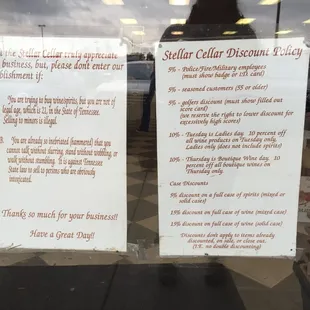 the Stellar Cellar truly appreciate
business, but, please don't enter our
blishment if:
You are trying to buy wine/spirits, but you are not of
legal age, which is 21, in the State of Tennessee.
Selling to minors is illegal.
You are already so inebriated (hammered) that you
cannot talk without slurring, stand without wobbling, or
walk without stumbling. It is against Tennessee
State law to sell to persons who are obviously
intoxicated.
Thanks so much for your business!!
Have a Great Day!!
Stellar Cellar Discount Policy
5% - Police/Fire/Military employees
(must show badge or I.D. card)
5% - seasoned customers (55 or older)
5% - golfers discount (must show filled out
score card)
(we reserve the right to lower discount for
excessively high scores)
10% - Tuesday is Ladies day 10 percent off
all wine products on Tuesday only.
Ladies only (does not include spirits)
10% - Thursday is Boutique Wine day. 10
percent off all boutique wines
on Thursday only.
Case Discounts
5% discount on a full case of spirits (mixed or
solid cases)
15% discount on full case of wine (mixed case)
15% discount on full case of wine (solid case)
Discounts don't apply to items already
discounted, on sale, or close out.
(I.E. no double discounting)